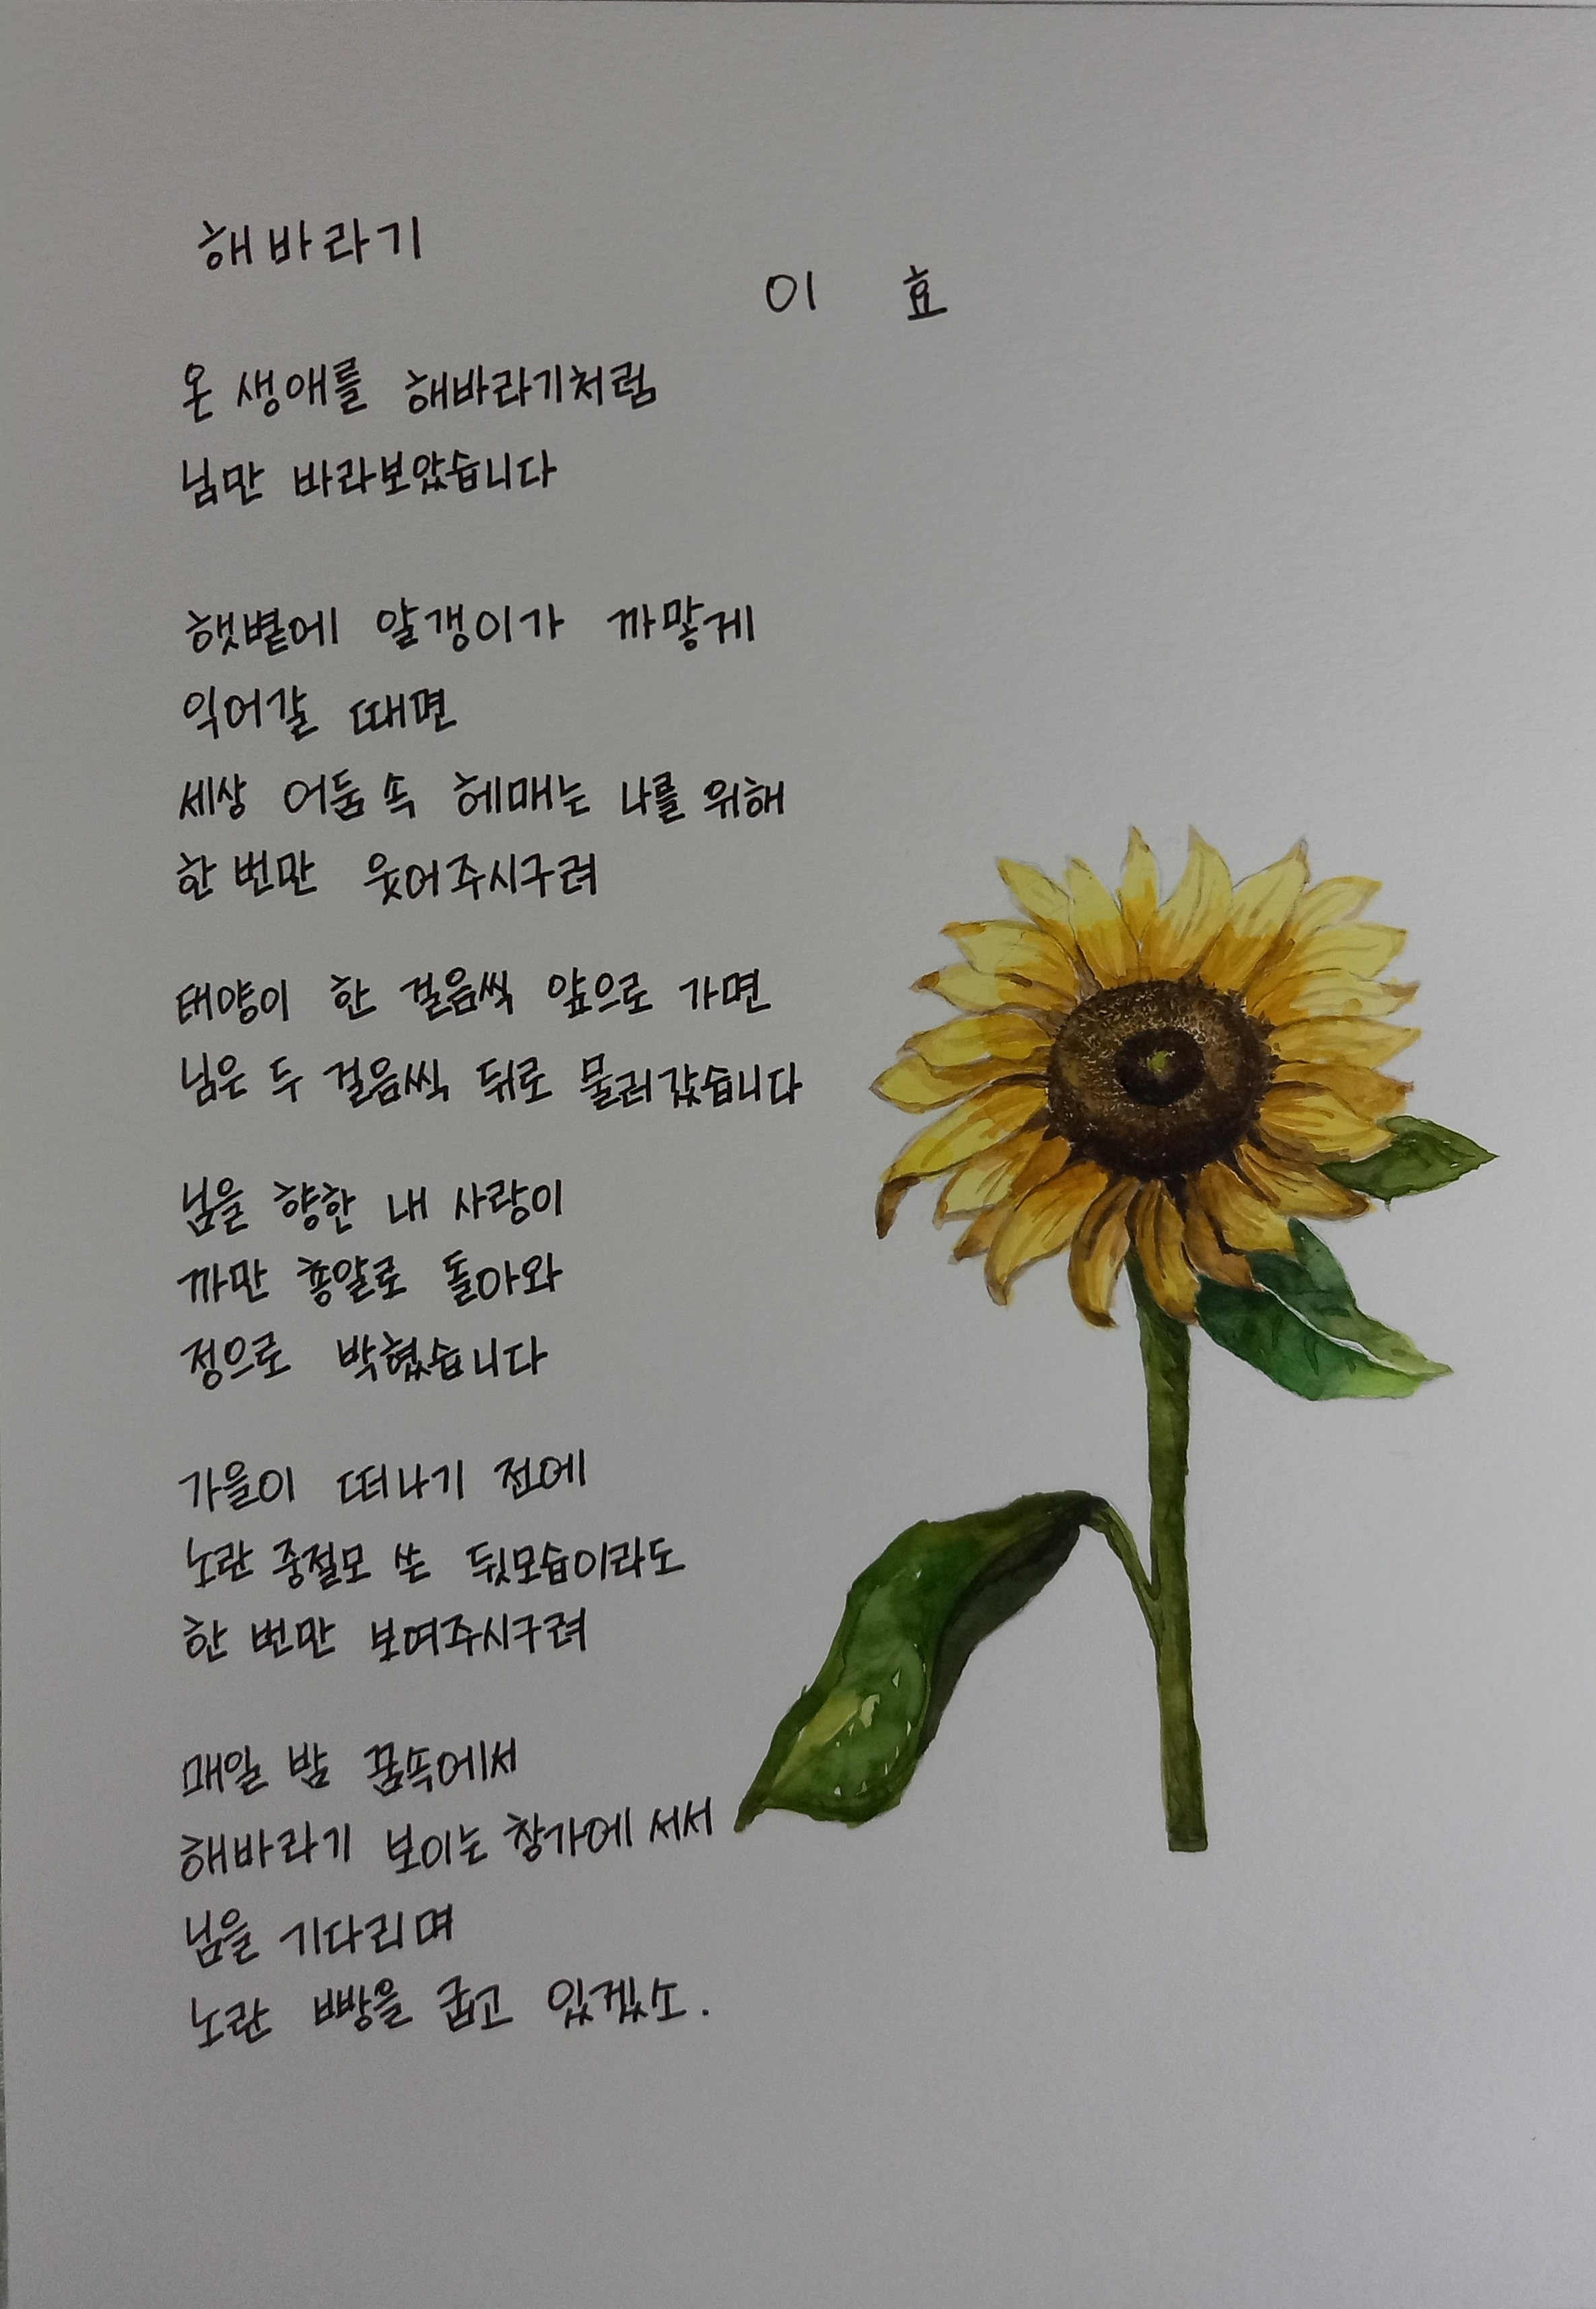 해바라기
이 효
온 생애를 해바라기처럼
님만 바라보았습니다
햇볕에 알갱이가 까맣게
익어갈 때면
세상 어둠 속 헤매는 나를 위해
한 번만 웃어주시구려
태양이 한 걸음씩 앞으로 가면
님은 두 걸음씩 뒤로 물러갔습니다
님을 향한 내 사랑이
까만 총알로 돌아와
정으로 박혔습니다
가을이 떠나기 전에
노란 중절모 쓴 뒷모습이라도
한 번만 보여주시구려
매일 밤 꿈속에서
해바라기 보이는 창가에 서서
님을 기다리며
노란 빵을 굽고 있겠소.